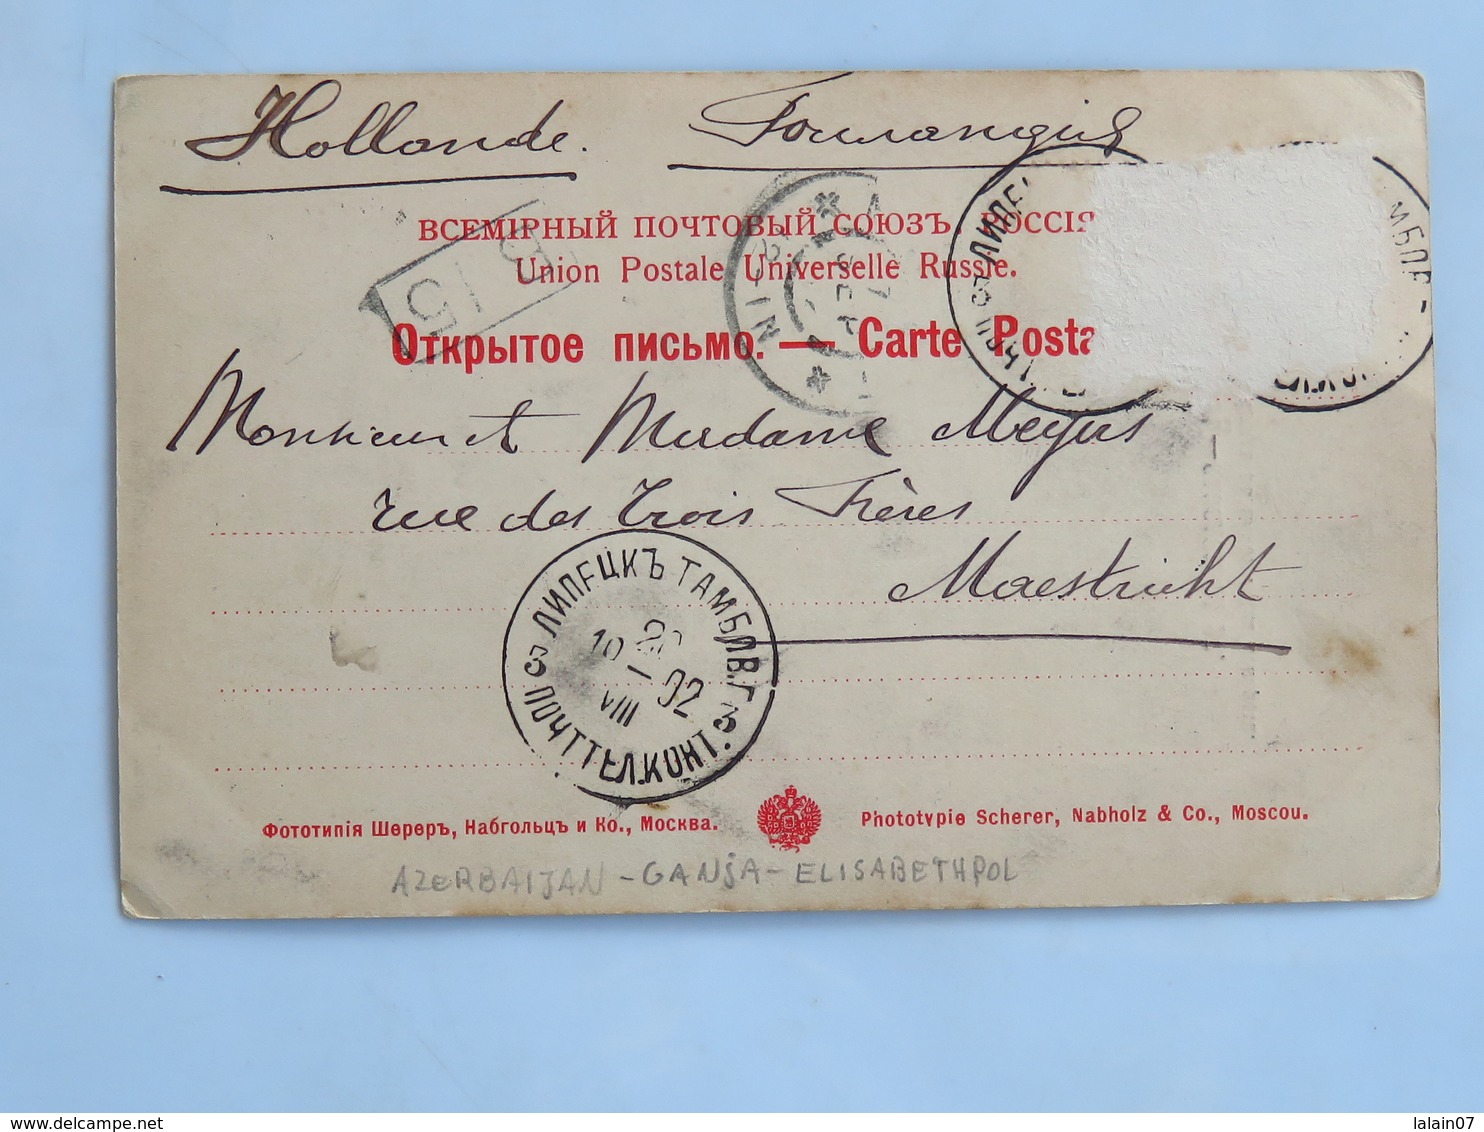 Hollande. Голландія
ВСЕМІРНЫЙ ПОЧТОВЫЙ СОЮЗЪ. РОССІЯ
Union Postale Universelle Russie.
Открытое письмо. — Carte Posta
Monsieur et Madame Meyers
rue des Trois Frères
Maestricht
ЛИПЕЦКЪ ТАМБОВ.Г.
10 VIII 02
ПОЧТ ТЕЛ.КОНТ.
Фототипія Шереръ, Набгольцъ и Ко., Москва.
Phototypie Scherer, Nabholz & Co., Moscou.
AZERBAIJAN - GANJA - ELISABETHPOL
lalain07